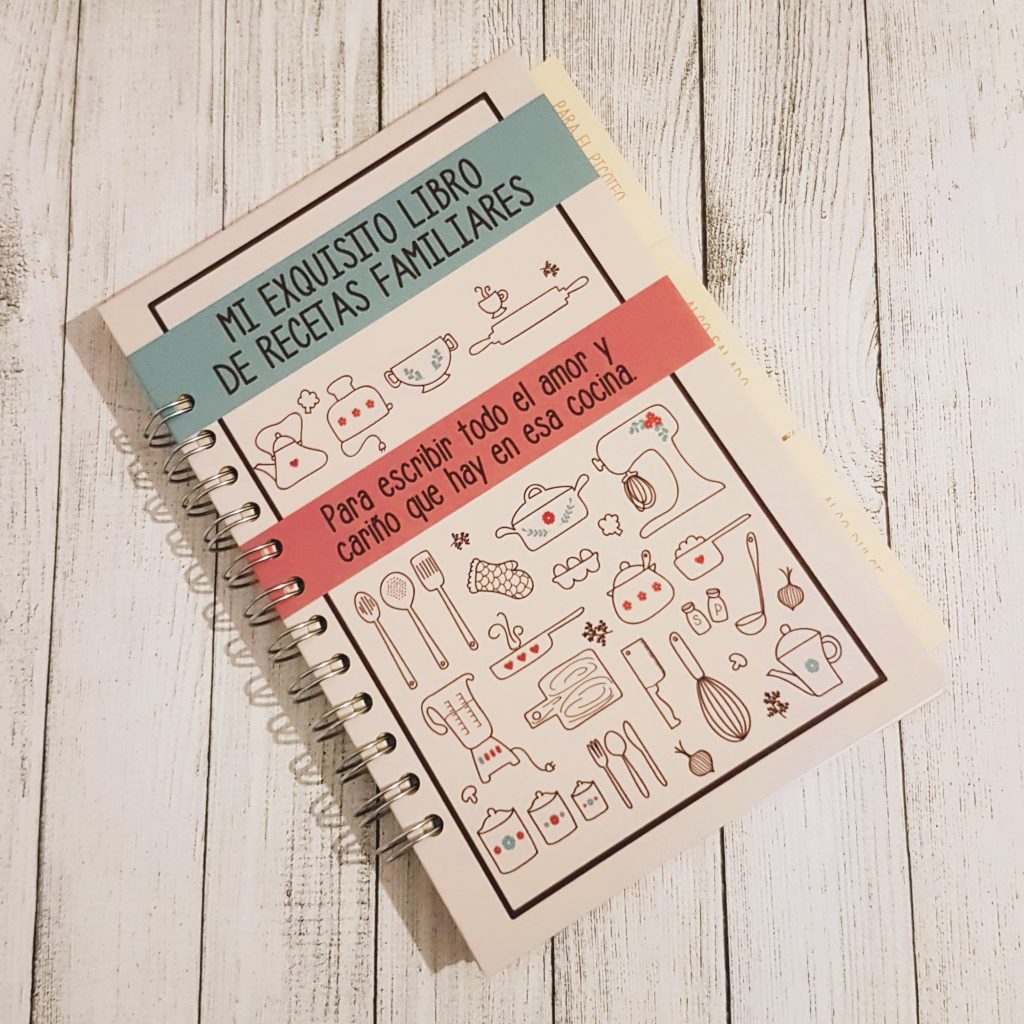 MI EXQUISITO LIBRO
DE RECETAS FAMILIARES
Para escribir todo el amor y
cariño que hay en esa cocina.
S P
PARA EL PICOTEO
ALGO SALADO
ALGO DULCE